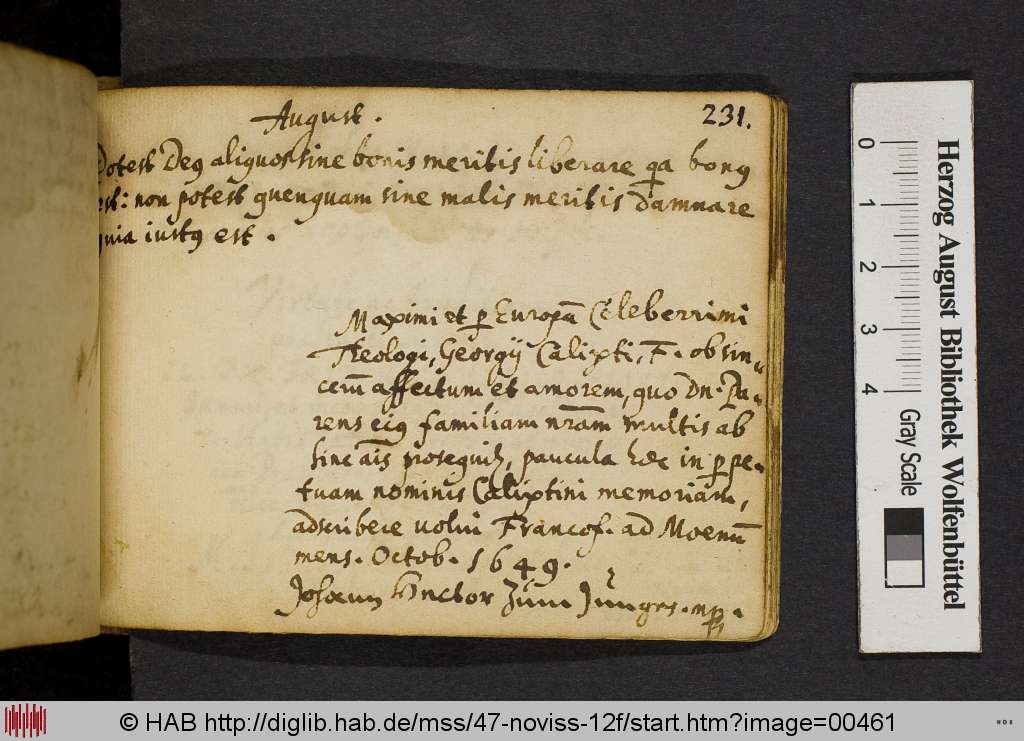 August.
231.
Potest Deq aliquos sine bonis meritis liberare qa bonq
est: non potest quenquam sine malis meritis damnare
quia iustq est.
Maximi et p Europā Celeberrimi
Theologi, Georgij Calixti, F. ob sin„
cerū affectum et amorem, quo Dn. Pa„
rens eiq familiam nr̄am multis ab
hinc añis prosequit, paucula hæc in perpe„
tuam nominis Calixtini memoriam,
adscribere volui Francof. ad Moenū
mens. Octob. 1649.
Johann Hector Zům Jůngen. mp.
0
1
2
3
4
Herzog August Bibliothek Wolfenbüttel
Gray Scale
© HAB http://diglib.hab.de/mss/47-noviss-12f/start.htm?image=00461
WDB